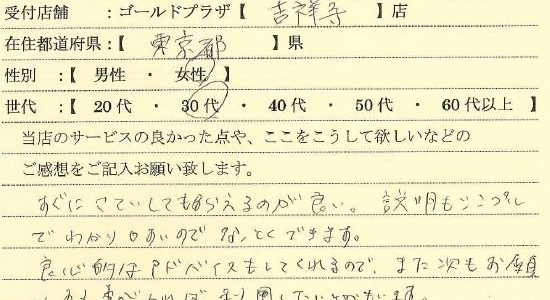 受付店舗　：ゴールドプラザ【　吉祥寺　】店
在住都道府県：【　東京都　】県
性別　：【　男性　・　女性　】
世代　：【　20代　・　30代　・　40代　・　50代　・　60代以上　】
当店のサービスの良かった点や、ここをこうして欲しいなどの
ご感想をご記入お願い致します。
すぐにさていしてもらえるのが良い。説明もシンプル
でわかりやすいのでなっとくできます。
良心的なアドバイスもしてくれるので、また次もお願